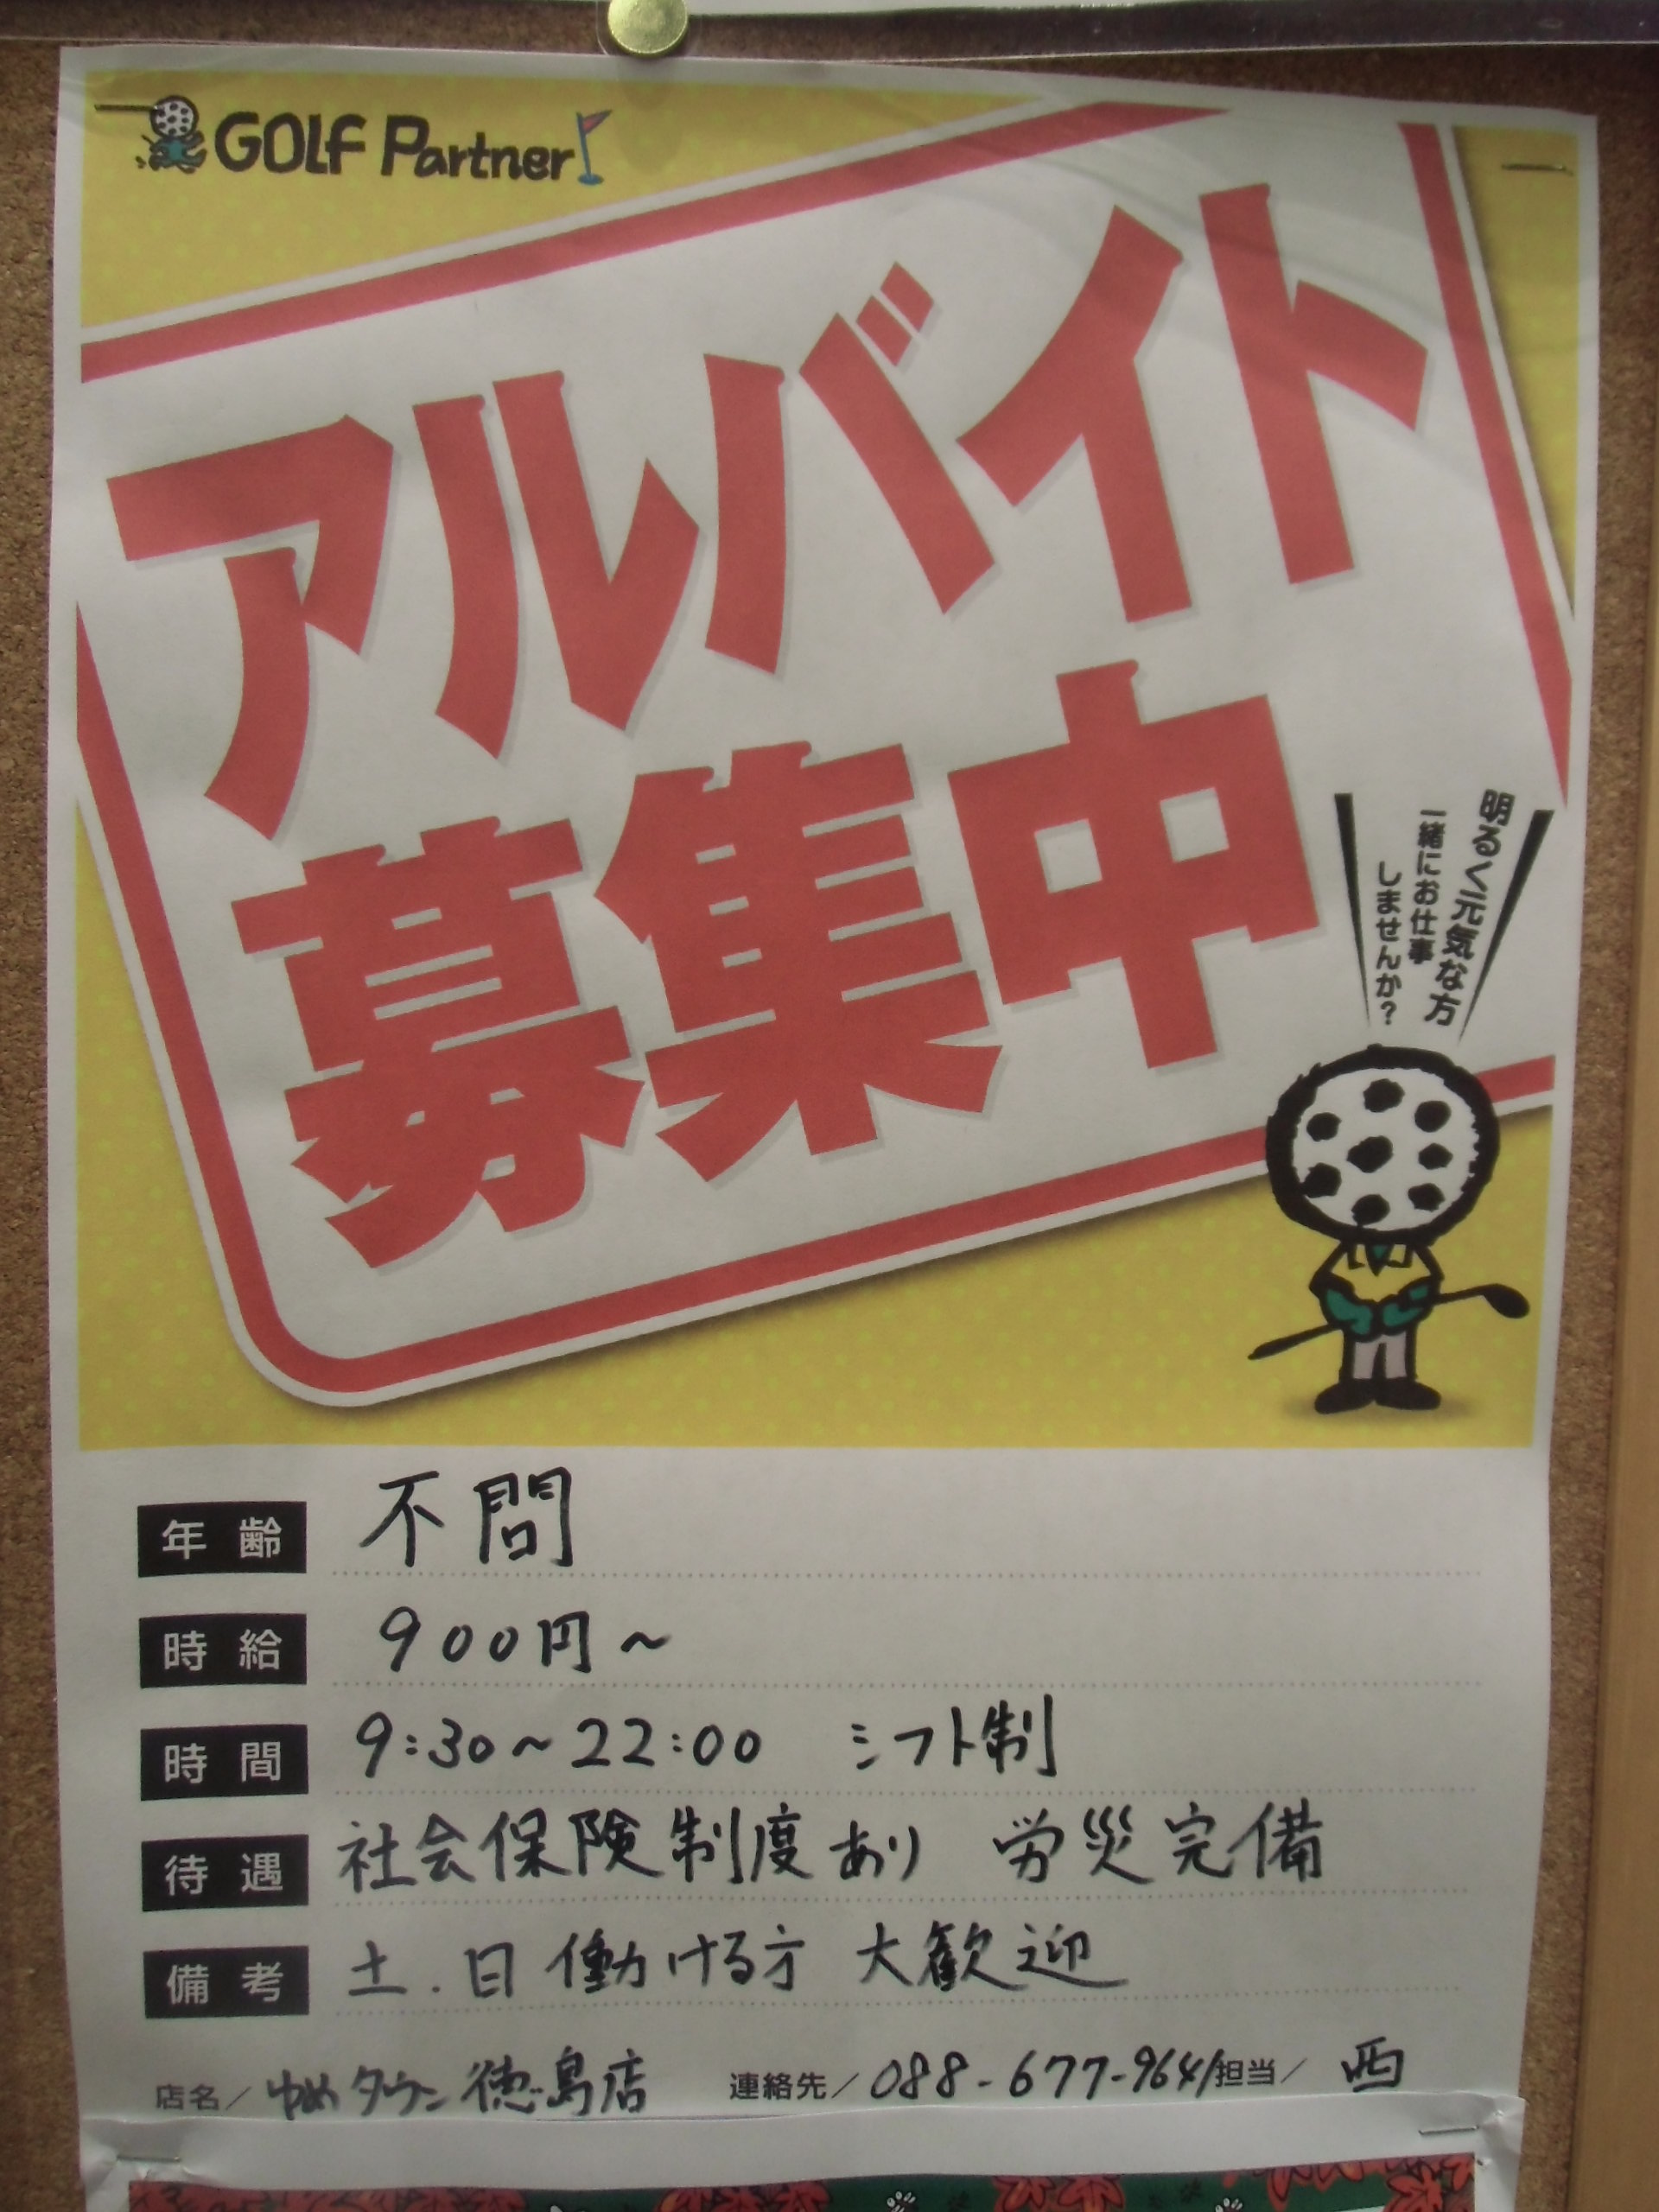 GOLF Partner
アルバイト
募集中
明るく元気な方
一緒にお仕事
しませんか?
年齢 不問
時給 900円~
時間 9:30~22:00 シフト制
待遇 社会保険制度あり 労災完備
備考 土.日働ける方 大歓迎
店名/ゆめタウン徳島店 連絡先/088-677-9641 担当/西